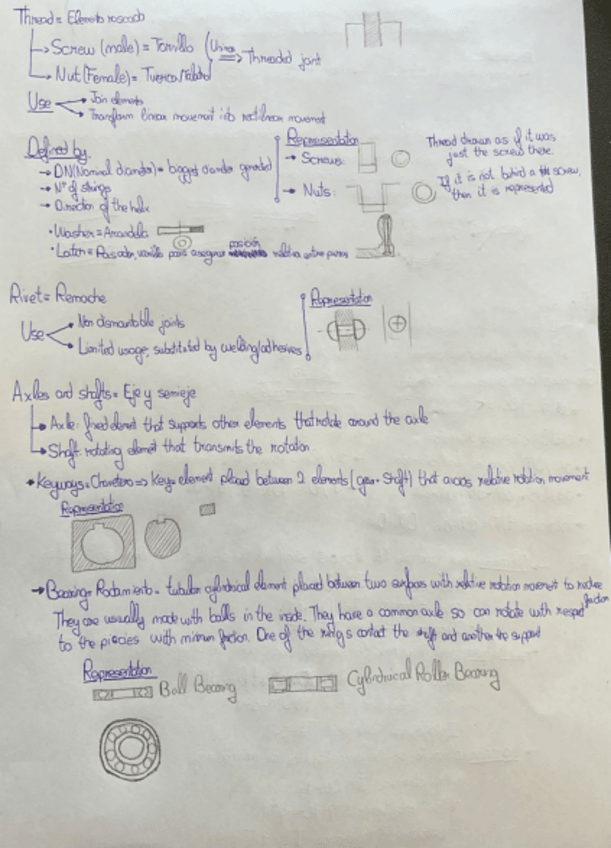 Thread = Elemento roscado
Screw (male) = Tornillo
(Union => Threaded joint
Nut (Female) = Tuerca/Taladro
Use
Join elements
Transform linear movement into rectilinear movement
Defined by:
DN (Nominal diameter) = biggest diameter
Nº of strings
Direction of the helix
Representation
Screws:
Nuts:
Thread drawn as if it was
just the screw there.
If it is not behind a the screw,
then it is represented
• Washer = Arandela
• Latch = Pasador, varilla para asegurar posición relativa entre piezas
Rivet = Remache
Use
Non dismantable joints
Limited usage, substituted by welding/adhesives
Representation
Axles and shafts = Eje y semieje
Axle: fixed element that supports other elements that rotate around the axle
Shaft: rotating element that transmits the rotation
Keyways = Chavetero => Key = element placed between 2 elements (gear-shaft) that avoids relative rotation movement
Representation
Bearing = Rodamiento = tubular cylindrical element placed between two surfaces with relative rotation movement to reduce
friction
They are usually made with balls in the inside. They have a common axle so can rotate with respect
to the piecies with minimun friction. One of the rings contact the shaft and another the support
Representation
Ball Bearing
Cylindrical Roller Bearing